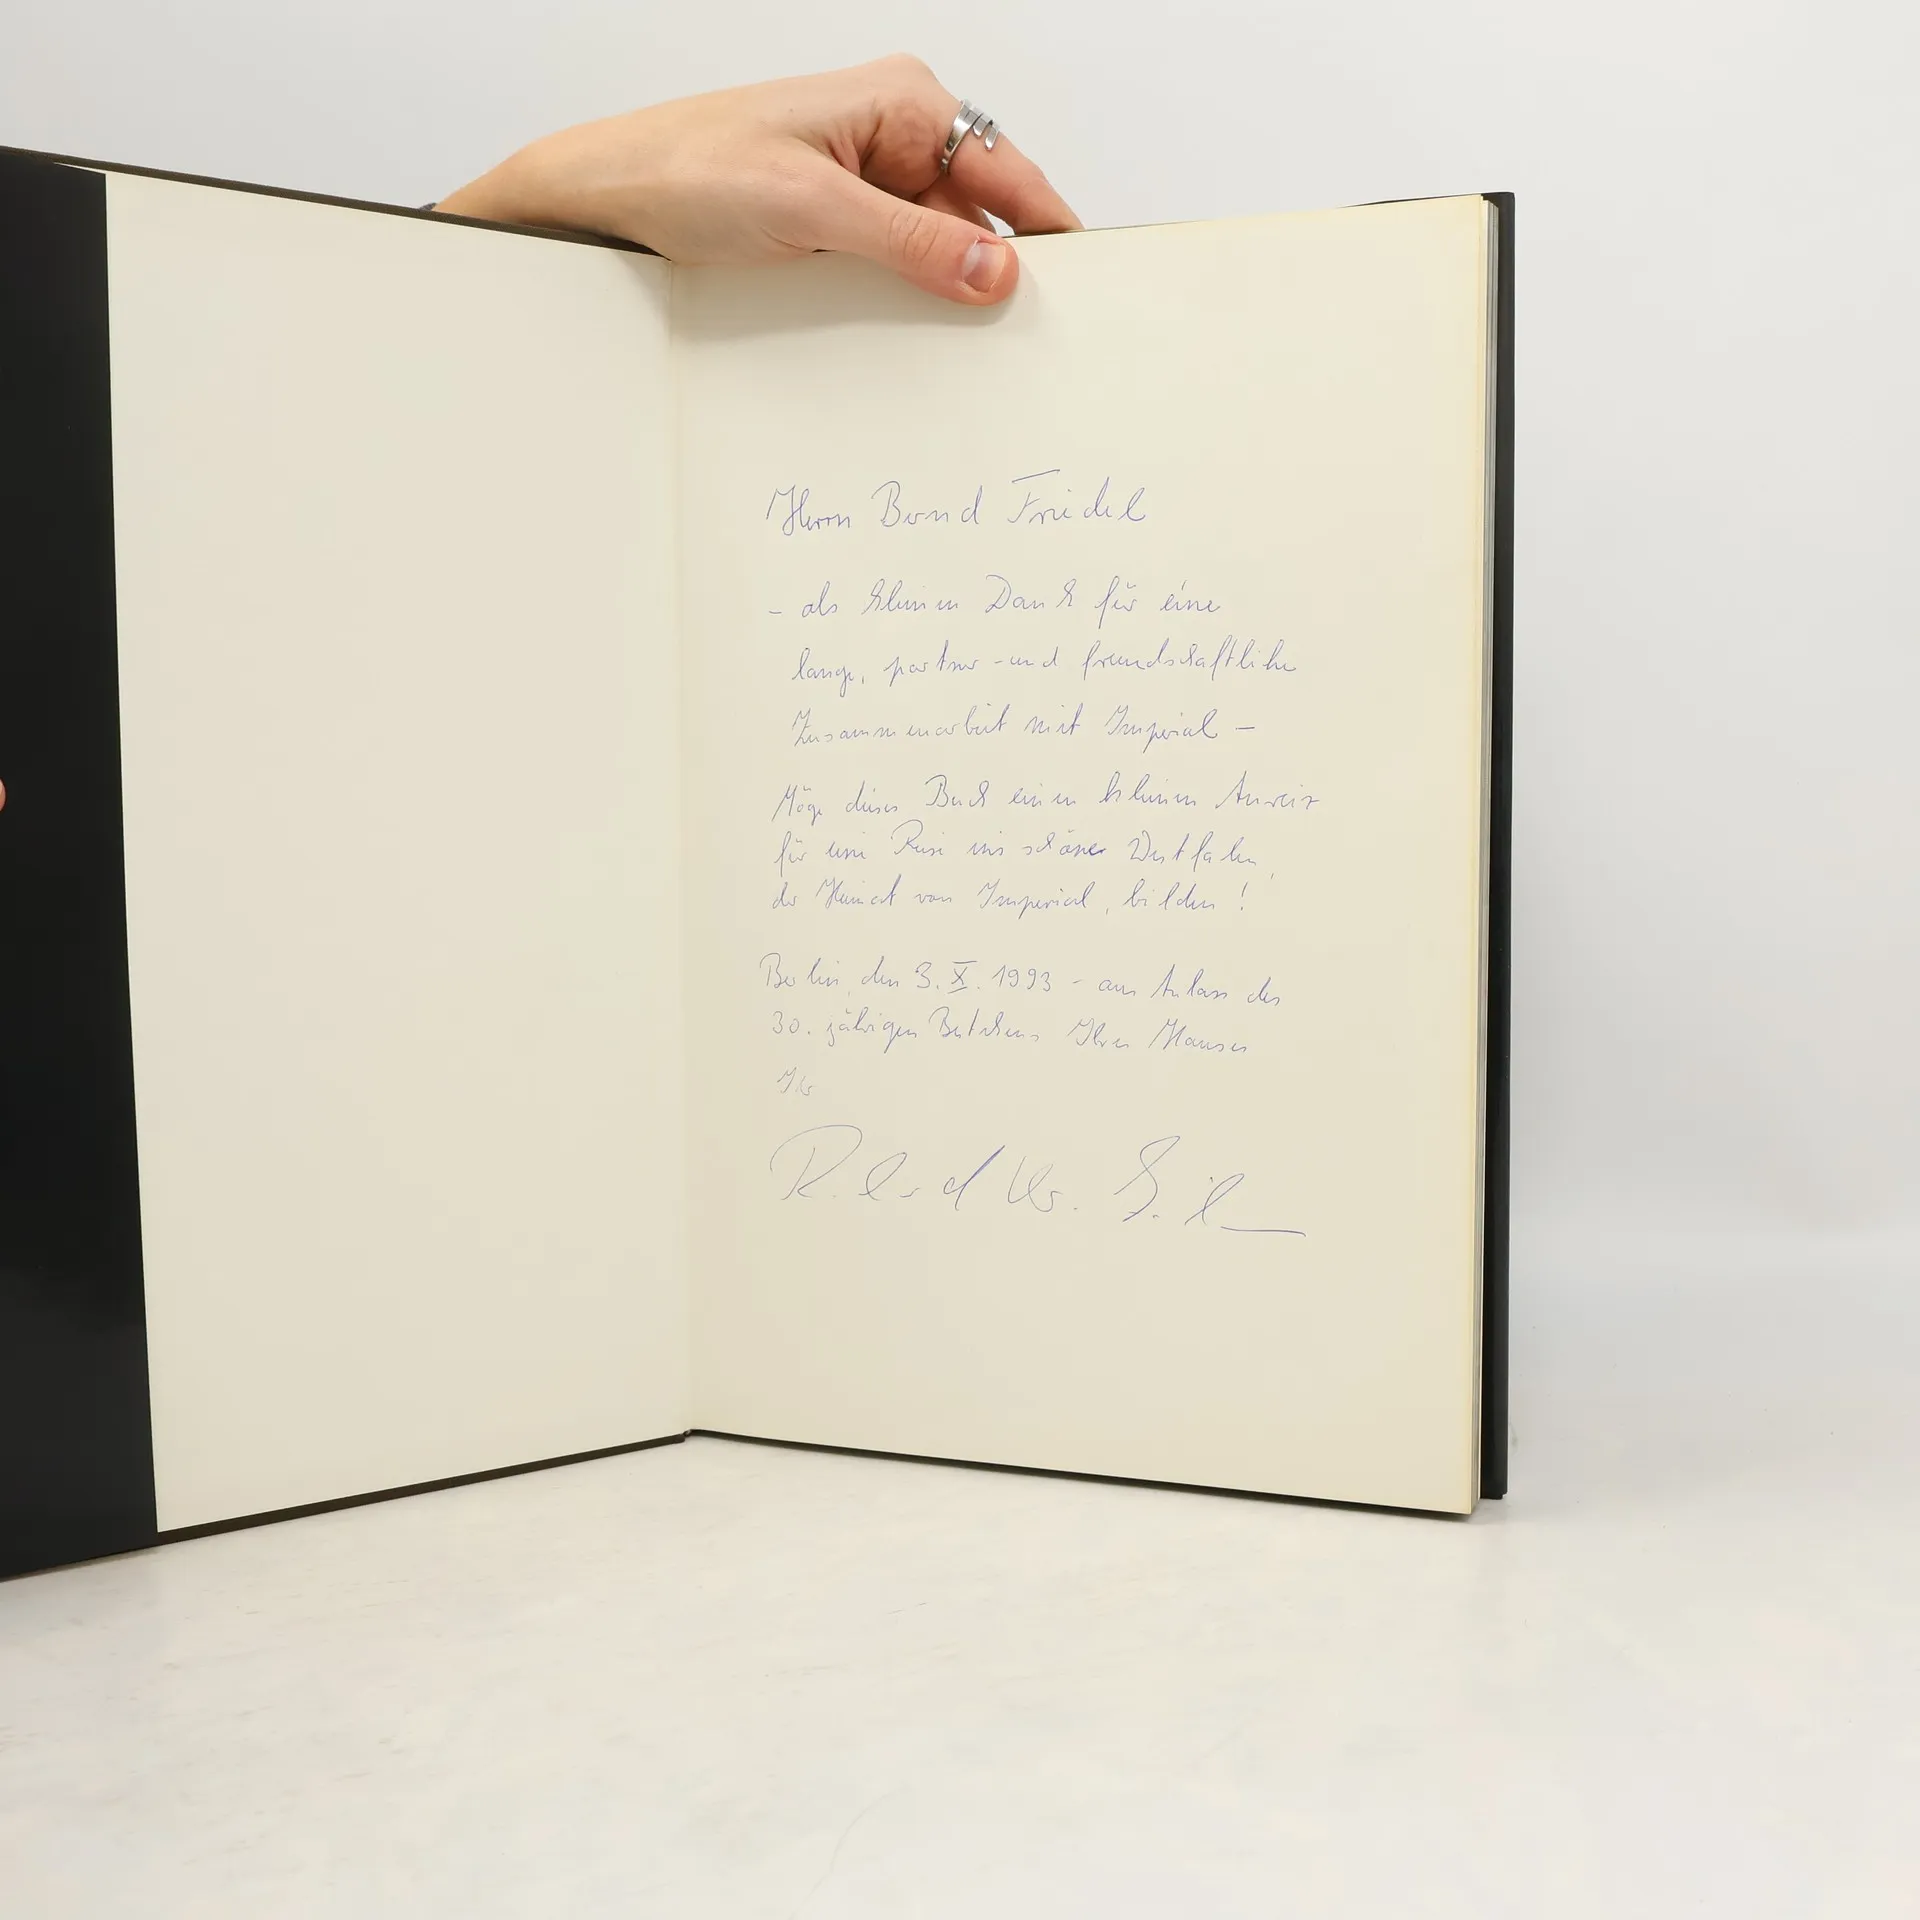 Herrn Bernd Friedel
- als kleinen Dank für eine
lange, partner- und freundschaftliche
Zusammenarbeit mit Imperial -
Möge dieses Buch einen kleinen Anreiz
für eine Reise ins schöne Westfalen,
der Heimat von Imperial, bilden!
Berlin, den 3. X. 1993 - aus Anlass des
30. jährigen Bestehens Ihres Hauses
Ihr